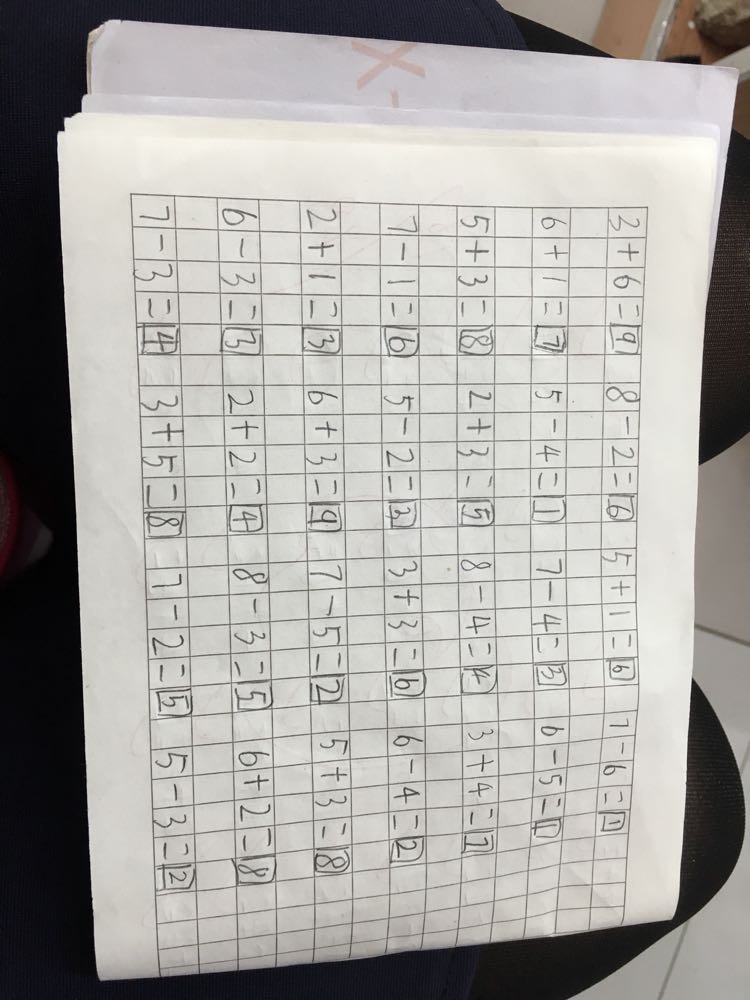 3+6=9 8-2=6 5+1=6 7-6=1
6+1=7 5-4=1 7-4=3 6-5=1
5+3=8 2+3=5 8-4=4 3+4=7
7-1=6 5-2=3 3+3=6 6-4=2
2+1=3 6+3=9 7-5=2 5+3=8
6-3=3 2+2=4 8-3=5 6+2=8
7-3=4 3+5=8 7-2=5 5-3=2